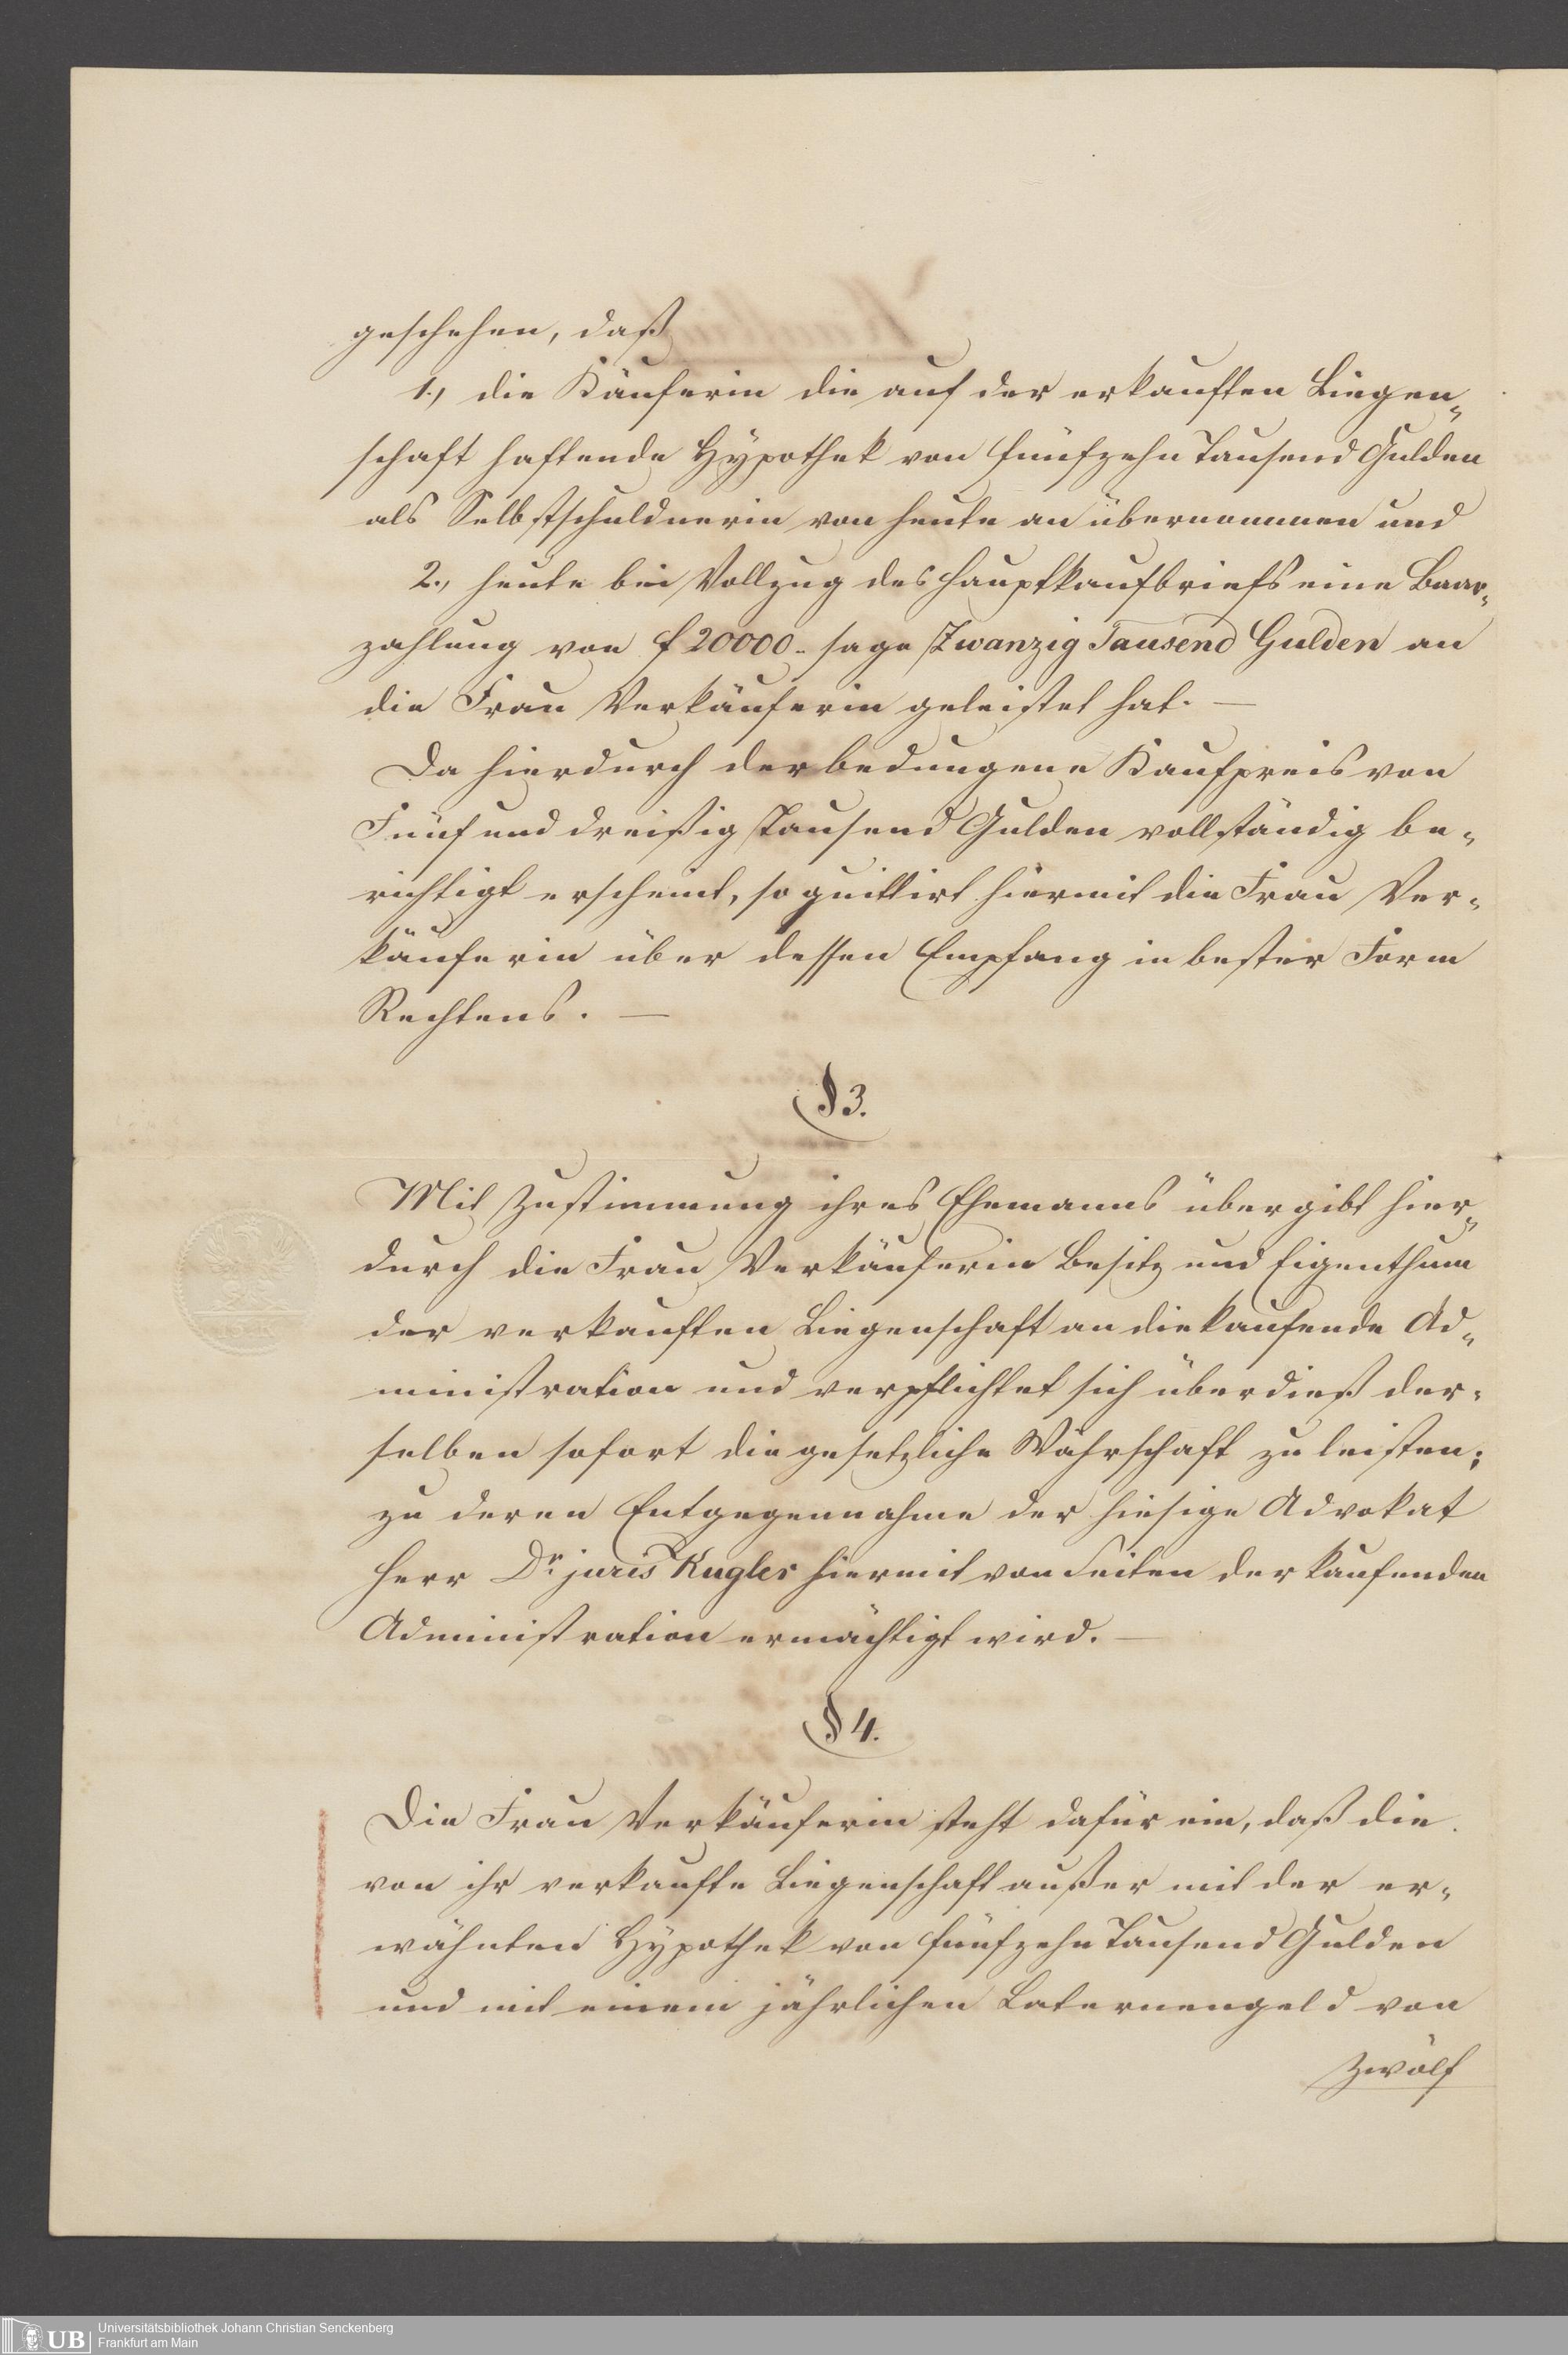 geschehen, daß
1., die Käuferin die auf der erkauften Liegen„
schaft haftende Hypothek von fünfzehn Tausend Gulden
als Selbstschuldnerin von heute an übernommen und
2., heute bei Vollzug des Hauptkaufbriefs eine Baar„
zahlung von f 20000.. sage Zwanzig Tausend Gulden an
die Frau Verkäuferin geleistet hat. —
Da hierdurch der bedungene Kaufpreis von
Fünf und dreißig Tausend Gulden vollständig be„
richtigt erscheint, so quittirt hiermit die Frau Ver„
käuferin über dessen Empfang in bester Form
Rechtens. —
§ 3.
Mit Zustimmung ihres Ehemanns übergibt hier„
durch die Frau Verkäuferin Besitz und Eigenthum
der verkauften Liegenschaft an die kaufende Ad„
ministration und verpflichtet sich überdieß der„
selben sofort die gesetzliche Währschaft zu leisten;
zu deren Entgegennahme der hiesige Advokat
Herr Dr. juris Kugler hiermit von Seiten der kaufenden
Administration ermächtigt wird. —
§ 4.
Die Frau Verkäuferin steht dafür ein, daß die
von ihr verkaufte Liegenschaft außer mit der er„
wähnten Hypothek von fünfzehn Tausend Gulden
und mit einem jährlichen Laternengeld von
Zwölf
UB
Universitätsbibliothek Johann Christian Senckenberg
Frankfurt am Main